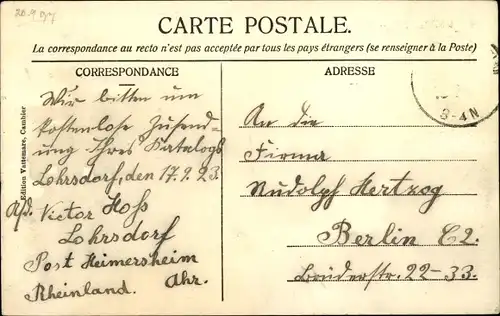 20.9.07
CARTE POSTALE.
La correspondance au recto n'est pas acceptée par tous les pays étrangers (se renseigner à la Poste)
CORRESPONDANCE
Wir bitten um
kostenlose Zusend-
ung Ihres Katalogs
Lohrsdorf, den 17.9.23.
Abs. Victor Hoss
Lohrsdorf
Post Heimersheim
Ahr.
Rheinland.
Edition Vattemare, Cambier
ADRESSE
An die
Firma
Rudolph Hertzog
Berlin C2.
Brüderstr. 22-33.
8-4N